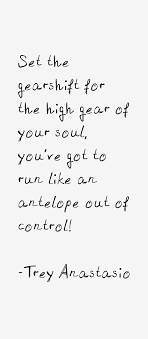 Set the
gearshift for
the high gear of
your soul,
you've got to
run like an
antelope out of
control!
-Trey Anastasio